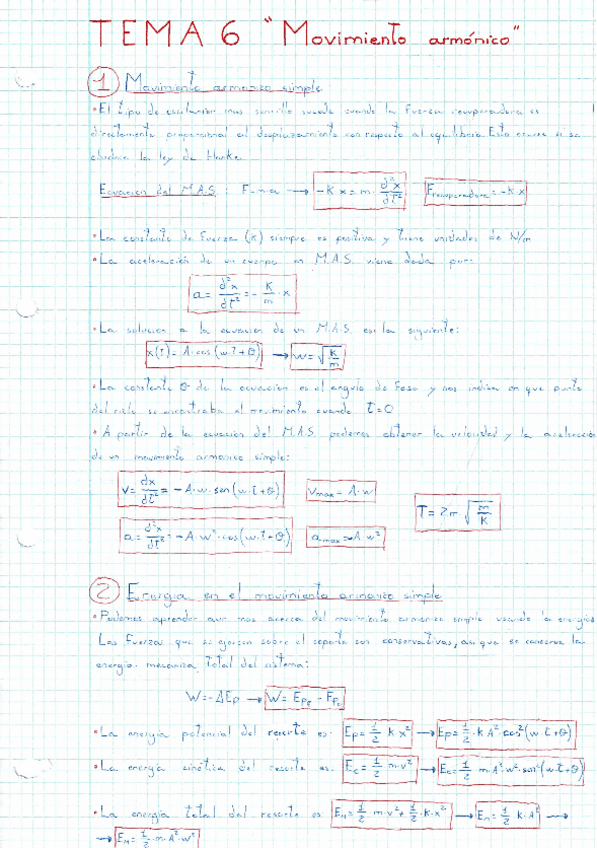 TEMA 6 "Movimiento armónico"
1 Movimiento armonico simple
• El tipo de oscilacion mas sencillo sucede cuando la fuerza recuperadora es
directamente proporcional al desplazamiento con respecto al equilibrio. Esto ocurre si se
obedece la ley de Hooke.
Ecuacion del M.A.S.: F=m·a → -K·x = m·d²x/dt² F recuperadora = -K·x
• La constante de fuerza (K) siempre es positiva y tiene unidades de N/m
• La aceleración de un cuerpo en M.A.S. viene dada por:
a = d²x/dt² = -K/m·x
• La solucion a la ecuacion de un M.A.S. es la siguiente:
x(t) = A·cos(w·t+θ) → w = √K/m
• La constante θ de la ecuacion es el angulo de fase y nos indica en que punto
del ciclo se encontraba el movimiento cuando t=0
• A partir de la ecuación del M.A.S. podemos obtener la velocidad y la aceleración
de un movimiento armonico simple:
v = dx/dt² = -A·w·sen(w·t+θ) Vmax = A·w
T = 2π √m/K
a = d²x/dt² = -A·w²·cos(w·t+θ) amax = A·w²
2 Energia en el movimiento armonico simple
• Podemos aprender aun mas acerca del movimiento armonico simple usando la energía
Las fuerzas que se ejercen sobre el son conservativas, asi que se conserva la
energia mecanica total del sistema:
W = -ΔEp → W =
• La energia potencial del resorte es: Ep = 1/2 K x² → Ep = 1/2·K A²·cos²(w·t+θ)
• La energia cinética del resorte es: Ec = 1/2 m·v² → Ec = 1/2 m·A²·w²·sen²(w·t+θ)
• La energia total del resorte es: EM = 1/2·m·v² + 1/2·K·x² → Em = 1/2·K·A² →
→ EM = 1/2·m·A²·w²